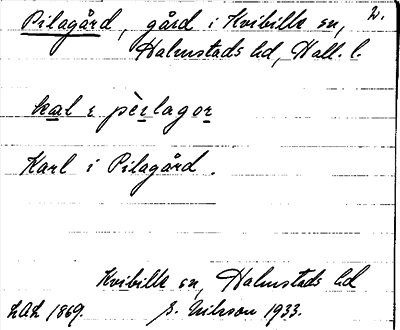 Pilagård, gård i Kvibille sn, 2.
Halmstads hd, Hall. l.
kal ɛ pèilagor
Karl i Pilagård.
Kvibille sn, Halmstads hd
LAL 1869. E. Nilsson 1933.